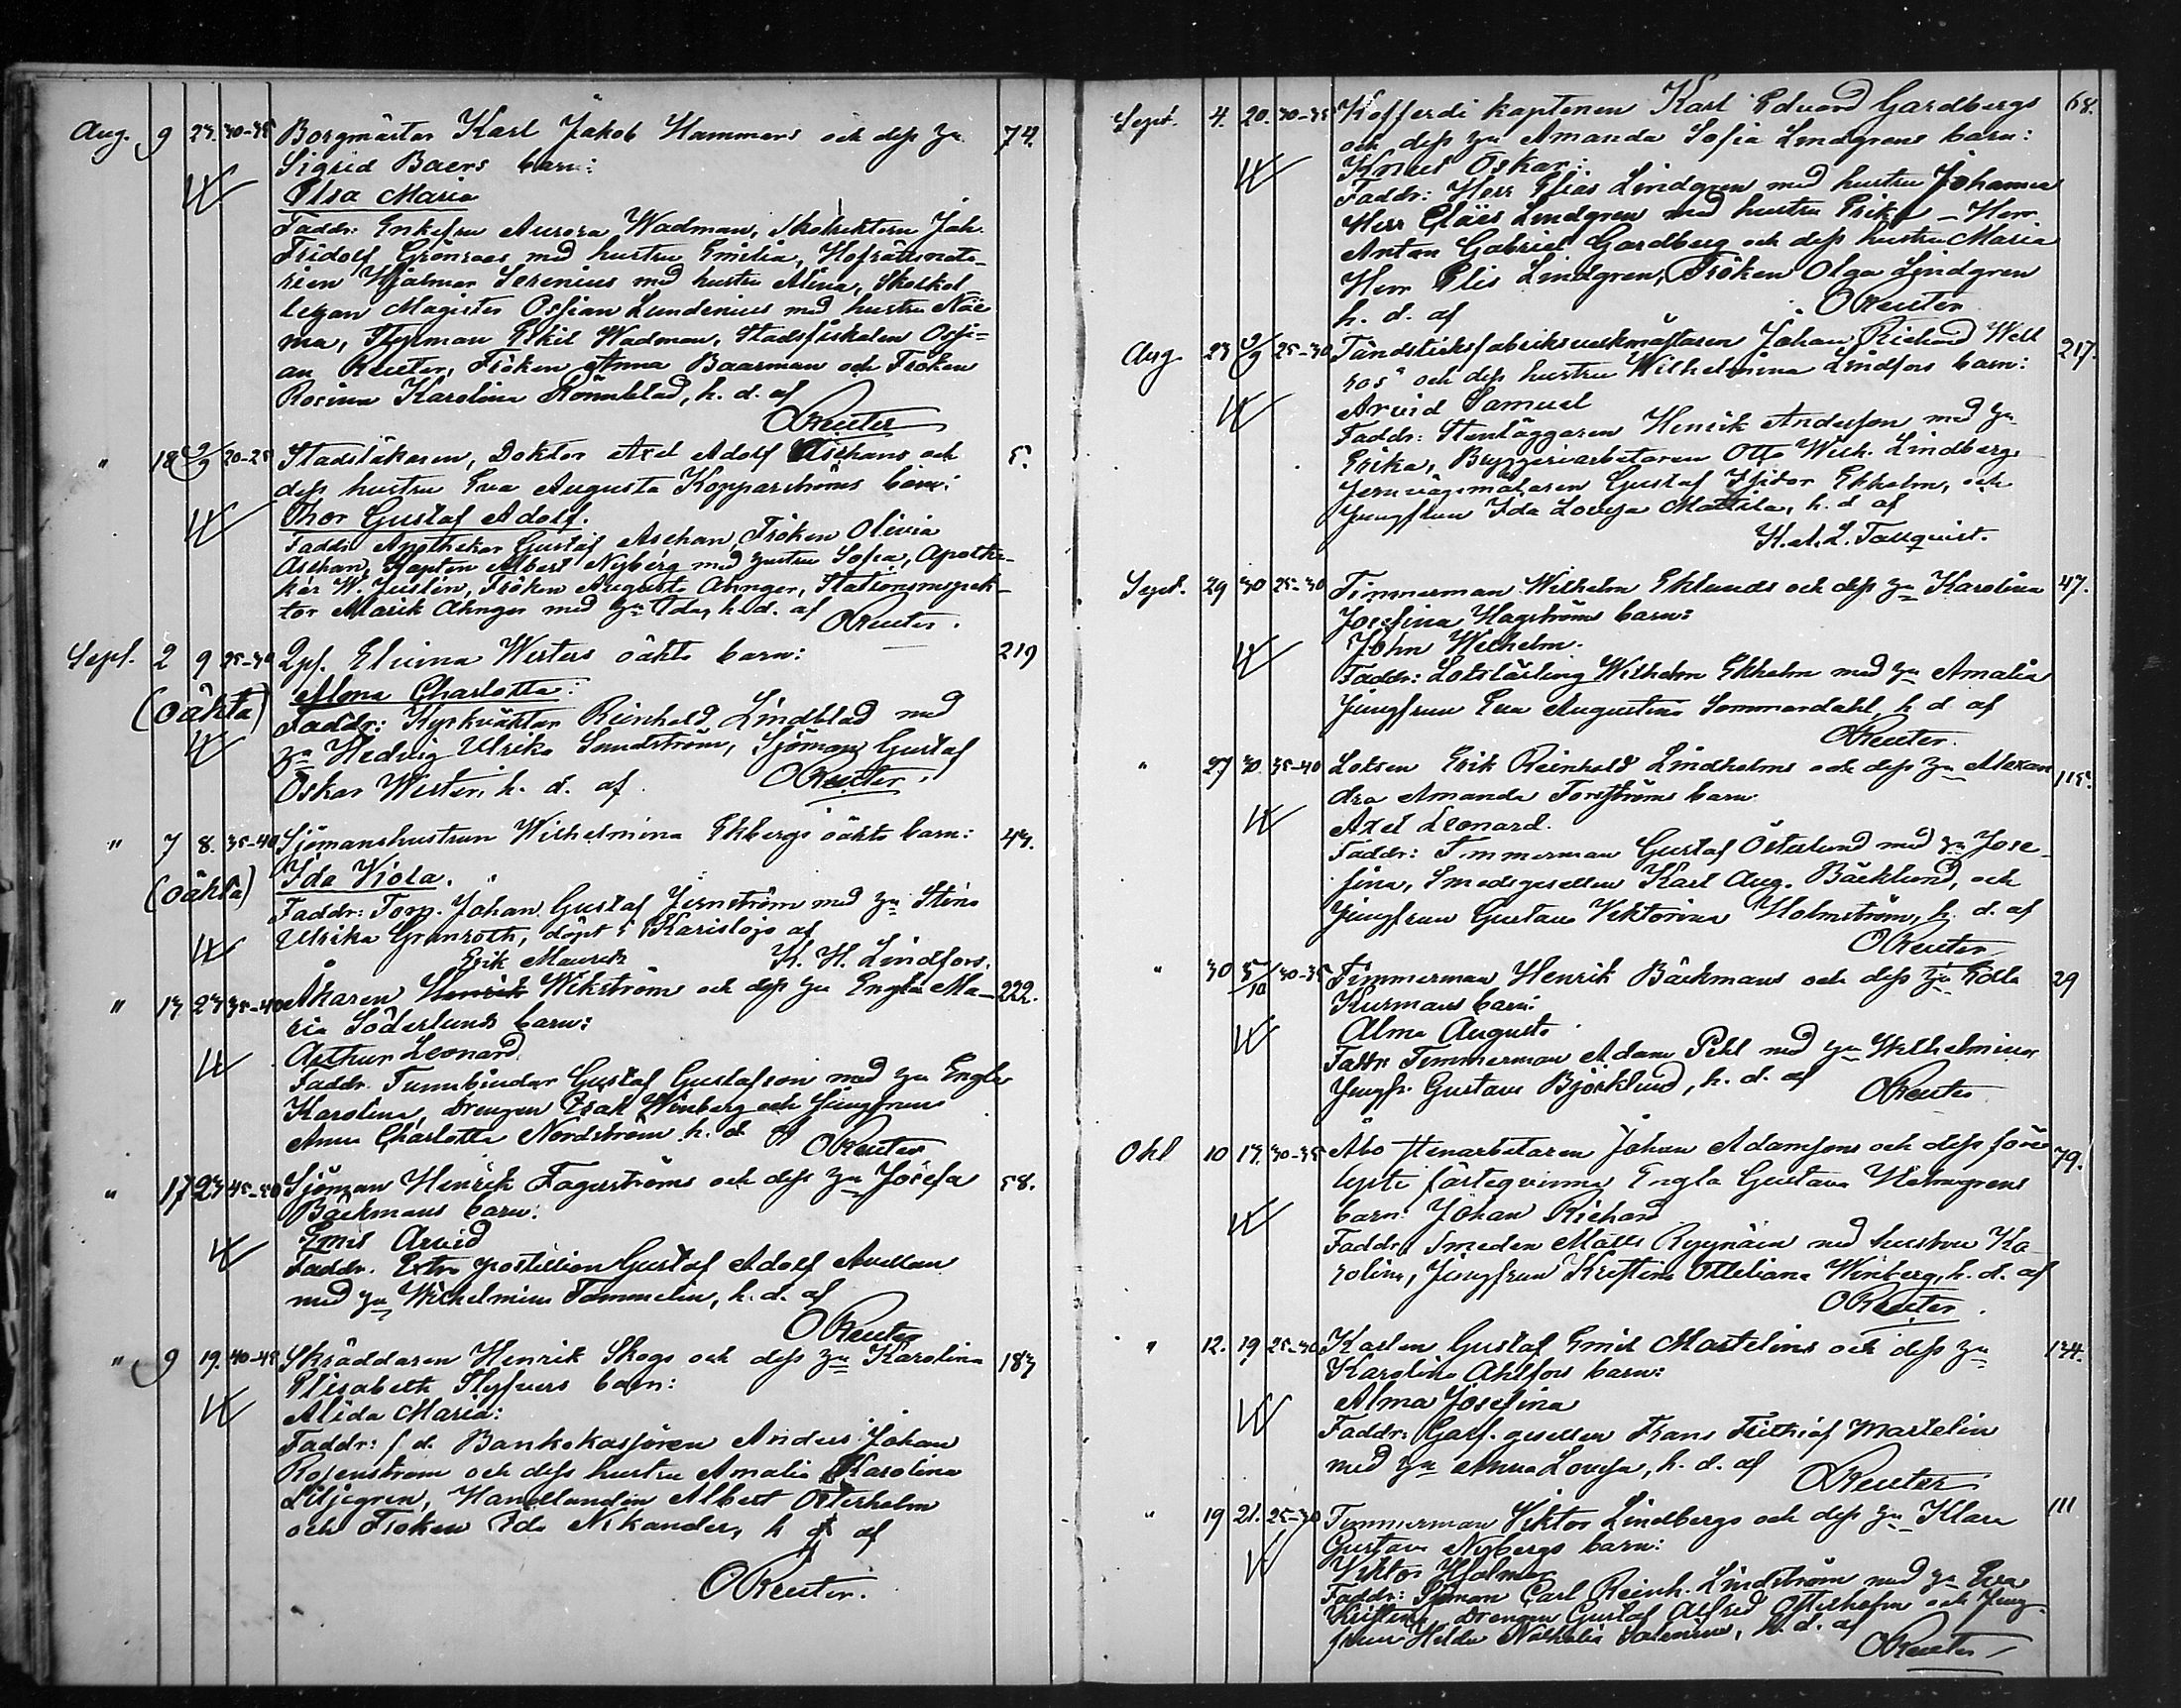 Aug. 9 23. 30-35 Borgmästar Karl Jakob Hammars och dess hu 74.
Sigrid Baers barn:
Elsa Maria
Faddr: Enkefru Aurora Wadman, Joh.
Fridolf Grönroos med hustru Emilia, Hofrättsnota-
rien Hjalmar Serenius med hustru Alina, Skolkol-
legan Magister Ossian Lundenius med hustru Näe-
ma, Styrman Eskil Wadman, Stadsfiskalen Ossi-
an Reuter, Fröken Anna Baarman och Fröken
Rosina Karolina Rönnblad, h. d. af
OReuter
" 18 2/9 20-25 Stadsläkaren, Doktor Axel Adolf Aschans och 5.
dess hustru Eva Augusta Kopparströms barn:
Thor Gustaf Adolf.
Faddr Apothekar Gustaf Aschan, Fröken Olivia
Aschan, Kapten Albert Nyberg med hustru Sofia, Apothe-
kar W. Juslin, Fröken Augusta Ahnger, Stationsinspek-
tor Marik Ahnger med hu Ida, h. d. af OReuter.
Sept. 2 9 25-30 Qpf. Elvina Westers oäkta barn: 219
(oäkta) Alma Charlotta:
Faddr: Kyrkväktar Reinhold Lindblad med
hu Hedvig Ulrika Sundström, Sjöman Gustaf
Oskar Wester, h. d. af OReuter.
" 7 8. 35-40 Sjömanshustrun Wilhelmina Ekbergs oäkta barn: 43.
(oäkta) Ida Viola.
Faddr: Torp. Johan Gustaf Jernström med hu Stina
Ulrika Granroth, döpt i Karislojo af
Erik Maurits K. H. Lindfors.
" 13 23 35-40 Åkaren Henrik Wikström och dess hu Engla Ma- 222.
ria Söderlunds barn:
Arthur Leonard
Faddr. Tunnbindar Gustaf Gustafson med hu Engla
Karolina, drengen Isak Winberg och Jungfrun
Anna Charlotta Nordström h. d. af OReuter
" 17 23 45-50 Sjöman Henrik Fagerströms och dess hu Josefa 58.
Bäckmans barn:
Emil Arvid
Faddr. Extra postillion Gustaf Adolf Avellan
med hu Wilhelmina Tammelin, h. d. af
OReuter
" 9 19. 40-45 Skräddaren Henrik Skogs och dess hu Karolina 183
Elisabeth Slyfvers barn:
Alida Maria:
Faddr: f. d. Bankokassören Anders Johan
Rosenström och dess hustru Amalia Karolina
Liljegren, Handlanden Albert Österholm
och Fröken Ida Nikander, h d af
OReuter.
Sept. 4. 20. 30-35 Kofferdi kaptenen Karl Edvard Gardbergs 68.
och dess hu Amanda Sofia Lindgrens barn:
Knut Oskar:
Faddr: Herr Elias Lindgren med hustru Johanna
Herr Claës Lindgren med hustru Erika – Herr
Anton Gabriel Gardberg och dess hustru Maria
Herr Elis Lindgren, Fröken Olga Lindgren
h. d. af OReuter
Aug 23 2/9 25-30 Tändsticksfabriksverkmästaren Johan Richard Well 217.
ros' och dess hustru Wilhelmina Lindfors barn:
Arvid Samuel
Faddr: Stenläggaren Henrik Andersson med hu
Erika, Bryggeriarbetaren Otto Wilh. Lindberg
Jernvägsmålaren Gustaf Isidor Ekholm, och
Jungfrun Ida Lovisa Mattila, h. d af
H. A. L. Tallquist.
Sept. 29 30 25-30 Timmerman Wilhelm Eklunds och dess hu Karolina 47.
Josefina Hagströms barn:
John Wilhelm.
Faddr: Lotslärling Wilhelm Ekholm med hu Amalia
Jungfrun Eva Augustina Sommardahl, h d af
OReuter.
" 27 30. 35-40 Lotsen Erik Reinhold Lindholms och dess hu Alexan 115.
dra Amanda Forsströms barn
Axel Leonard.
Faddr: Timmerman Gustaf Österlund med hu Jose-
fina, Smedsgesellen Karl Aug. Bäcklund, och
Jungfrun Gustava Viktorina Holmström, h. d. af
OReuter
" 30 5/10 30-35 Timmerman Henrik Bäckmans och dess hu Edla 29
Kurmans barn:
Alma Augusta
Faddr Timmerman Adam Pihl med hu Wilhelmina
Jungfr. Gustava Björklund, h. d. af OReuter
Okt 10 13. 30-35 Åbo stenarbetaren Johan Adamsons och dess före 79.
lysta fästeqvinna Engla Gustava Holmgrens
barn: Johan Richard
Faddr: Smeden Matts Ryynäin med hustru Ka
rolina, Jungfrun Kristina Otteliana Winberg, h. d. af
OReuter.
" 12. 19 25-30 Karlen Gustaf Emil Martelins och dess hu 134.
Karolina Ahlfors barn:
Alma Josefina
Faddr: Garf. gesellen Frans Frithiof Martelin
med hu Anna Lovisa, h. d. af OReuter
" 19 21. 25-30 Timmerman Viktor Lindbergs och dess hu Klara 111
Gustava Nybergs barn:
Viktor Hjalmar
Faddr: Sjöman Carl Reinh. Lindström med hu Eva
Kristina, drengen Gustaf Alfred Österholm och Jung-
frun Hilda Nathalia Salenius, h. d. af
OReuter